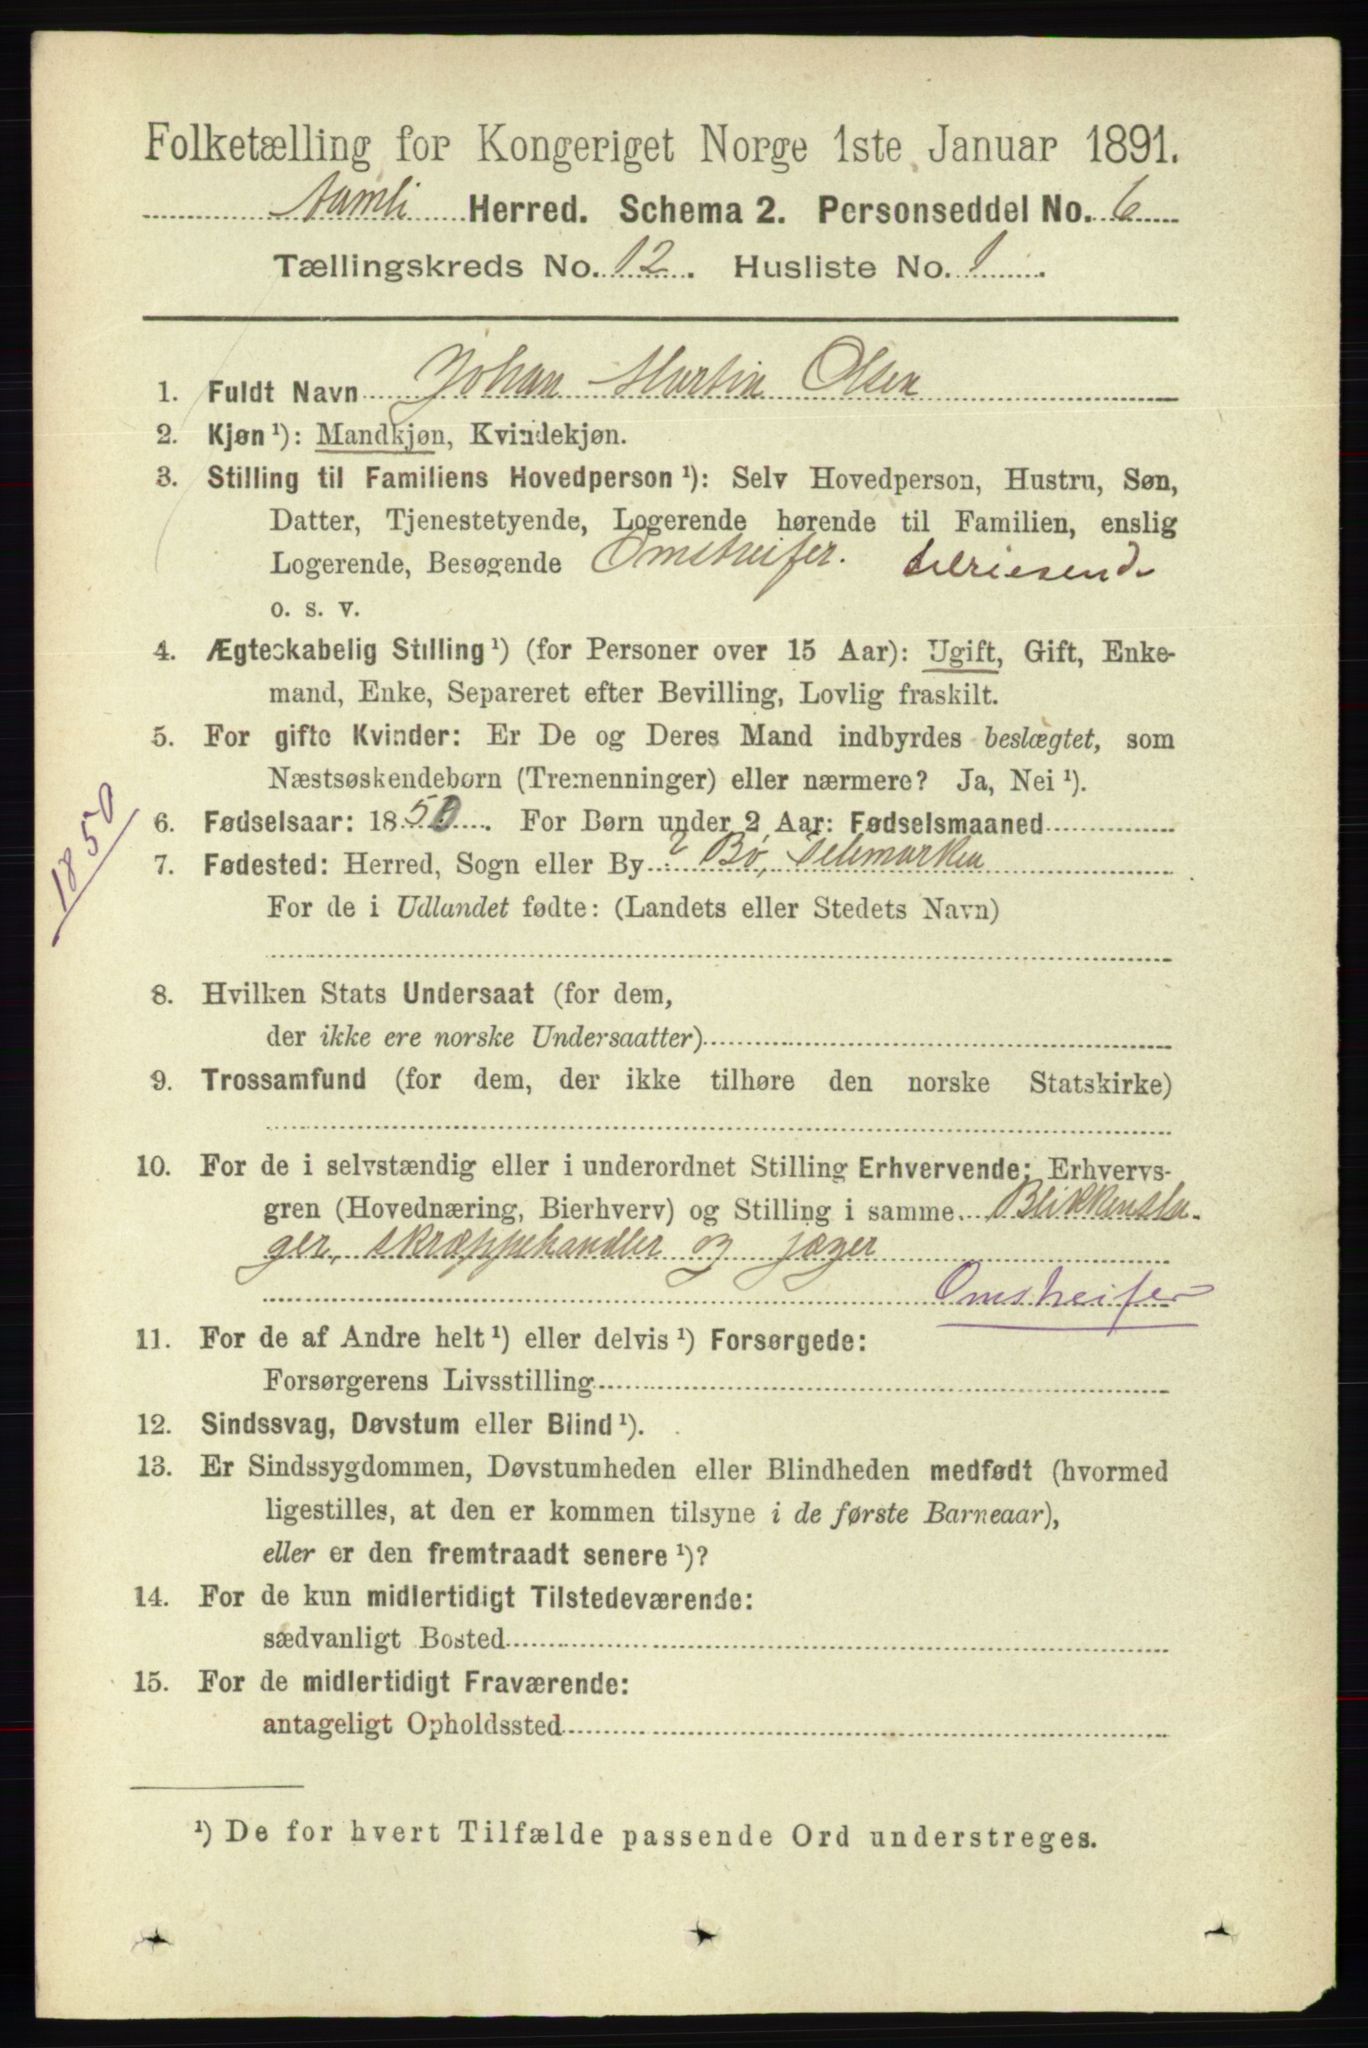 Folketælling for Kongeriget Norge 1ste Januar 1891.
Aamli Herred. Schema 2. Personseddel No. 6
Tællingskreds No. 12. Husliste No. 1.
1. Fuldt Navn Johan Martin Olsen
2. Kjøn ¹): Mandkjøn, Kvindekjøn.
3. Stilling til Familiens Hovedperson ¹): Selv Hovedperson, Hustru, Søn,
Datter, Tjenestetyende, Logerende hørende til Familien, enslig
Logerende, Besøgende Omstreifer. tilreisende
o. s. v.
4. Ægteskabelig Stilling ¹) (for Personer over 15 Aar): Ugift, Gift, Enke-
mand, Enke, Separeret efter Bevilling, Lovlig fraskilt.
5. For gifte Kvinder: Er De og Deres Mand indbyrdes beslægtet, som
Næstsøskendebørn (Tremenninger) eller nærmere? Ja, Nei ¹).
1850
6. Fødselsaar: 1850. For Børn under 2 Aar: Fødselsmaaned
7. Fødested: Herred, Sogn eller By ? Bø, Telemarken
For de i Udlandet fødte: (Landets eller Stedets Navn)
8. Hvilken Stats Undersaat (for dem,
der ikke ere norske Undersaatter)
9. Trossamfund (for dem, der ikke tilhøre den norske Statskirke)
10. For de i selvstændig eller i underordnet Stilling Erhvervende: Erhvervs-
gren (Hovednæring, Bierhverv) og Stilling i samme Blikkensla-
ger, skræppehandler og jæger
Omstreifer
11. For de af Andre helt ¹) eller delvis ¹) Forsørgede:
Forsørgerens Livsstilling
12. Sindssvag, Døvstum eller Blind ¹).
13. Er Sindssygdommen, Døvstumheden eller Blindheden medfødt (hvormed
ligestilles, at den er kommen tilsyne i de første Barneaar),
eller er den fremtraadt senere ¹)?
14. For de kun midlertidigt Tilstedeværende:
sædvanligt Bosted
15. For de midlertidigt Fraværende:
antageligt Opholdssted
¹) De for hvert Tilfælde passende Ord understreges.